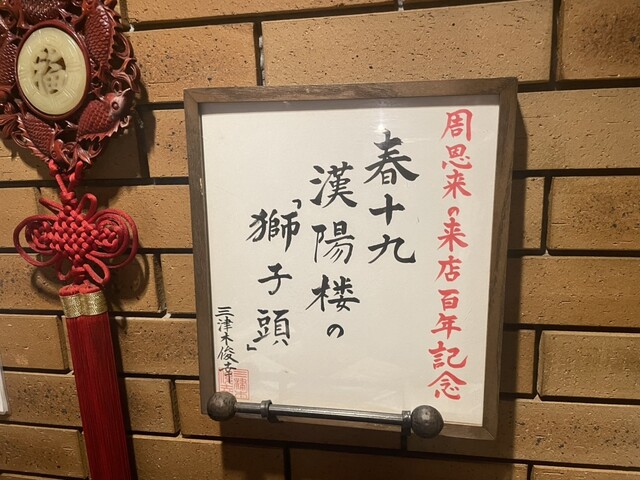 周恩来の来店百年記念
春十九
漢陽楼の
「獅子頭」
三津木俊幸
福